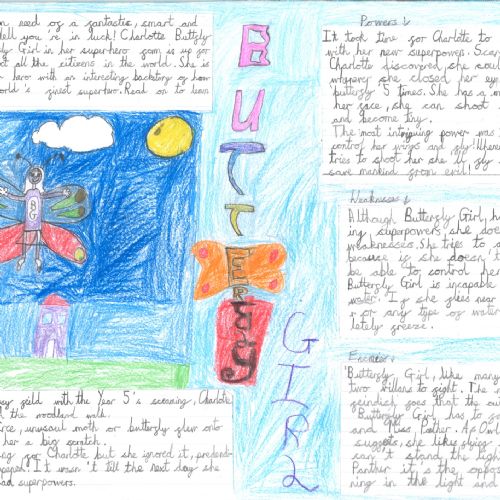 in need of a fantastic, smart and
well you're in luck! Charlotte Buttfly
Girl in her superhero form is up for
all the citizens in the world. She is
hero with an interesting backstory of how
world's finest superhero. Read on to learn
BG
field with the Year 5's scening, Charlotte
the woodland walk.
unusual moth or butterfly flew onto
her a big scratch.
for Charlotte but she ignored it,
It wasn't till the next day she
had superpowers.
BUTTERFLY
GIRL
Powers:
It took time for Charlotte to
with her new superpowers.
Charlotte discovered, she
she closed her eye
butterfly 5 times. She has a
her face, she can shoot
and become tiny.
The most intriguing power was
control her wings and fly!
tries to shoot her she'll fly
save mankind from evil!
Weaknesses:
Although Butterfly Girl, ha
ing superpowers she doe
weaknesses. She tries to
because if she doesn't
be able to control her
Butterfly Girl is incapable
water. If she flies near
or any type of water
letely freeze.
Enemies:
Butterfly Girl, like many
two villans to fight. The
goes that the ou
Butterfly Girl has to
and Miss. Panther. As Owl
suggests, she likes flying
can't stand the light
Panther it's the opp
ning in the light and